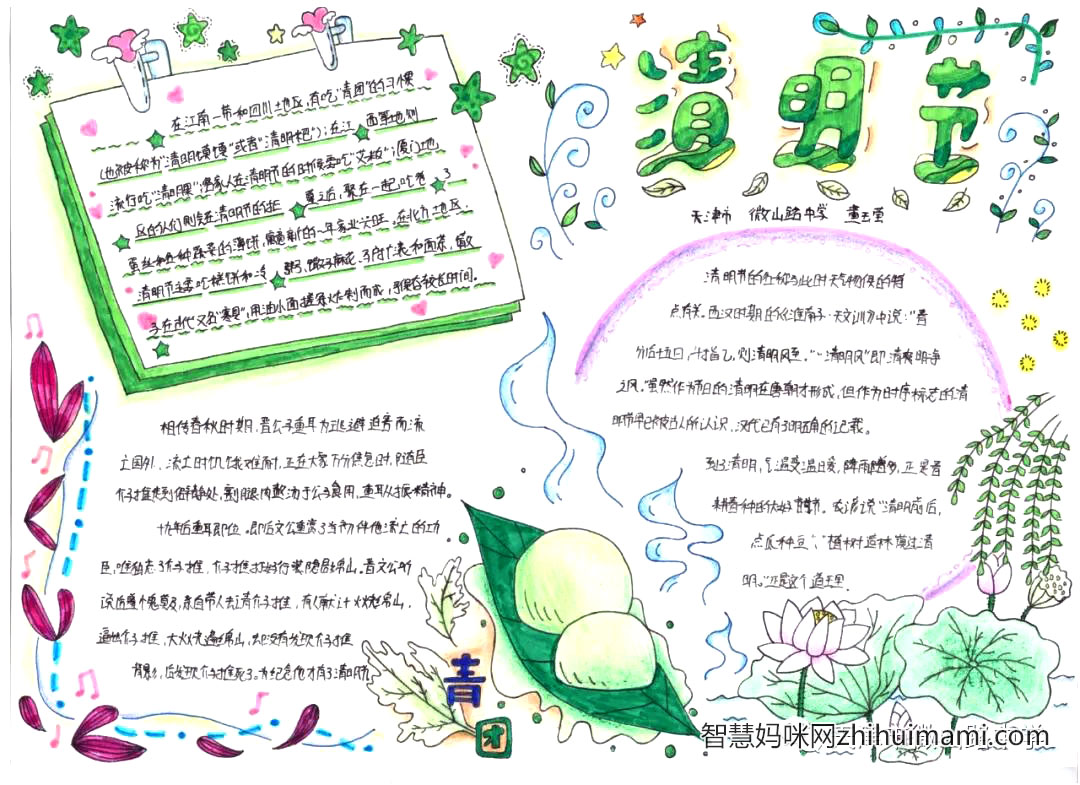 清明节
天津市 微山路中学
在江南一带和四川地区,有吃“青团”的习惯
(也被称为“清明馍馍”或者“清明粑”);在江西等地则
流行吃“清明果”;客家人在清明节的时候要吃“艾粄”;厦门地
区的人们则会在清明节的 聚在一起,吃卷
蛋丝和各种蔬菜的薄饼,寓意新的一年家业兴旺,在北方地区,
清明节主要吃糕饼和冷粥、馓子麻花
子在古代又名“寒具”,用油水面搓条炸制而成,可保存较长时间。
清明节的名称与此时天气物候的特
点有关。西汉时期的《淮南子·天文训》中说:“春
分后十五日,斗指乙,则清明风至。”“清明风”即清爽明净
之风。虽然作为节日的清明在唐朝才形成,但作为时序标志的清
明节早已被古人所认识,汉代已有了明确的记载。
到了清明,气温变暖,降雨增多,正是春
耕春种的大好时节。农谚说“清明前后,
点瓜种豆”、“植树造林,莫过清
明。”正是这个道理
相传春秋时期,晋公子重耳为逃避迫害而流
亡国外,流亡时饥饿难耐,正在大家万分焦急时,随臣
介子推走到僻静处,割腿肉 公子食用,重耳从 振精神。
十九年后重耳即位,即后文公重赏了当初伴他流亡的功
臣,唯独忘了介子推,介子推打好行装隐居绵山。晋文公听
说后羞愧莫及,亲自带人去请介子推,有人献计火烧绵山,
逼出介子推,大火烧遍绵山,却没有发现介子推
后发现介子推死了。为纪念他才有了清明节
青
团
智慧妈咪网zhihuimami.com